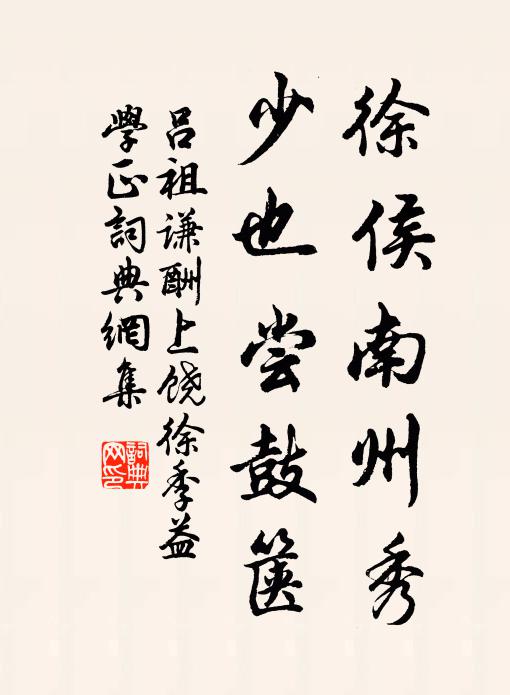 徐侯南州秀
少也尝鼓箧
吕祖谦酬上饶徐季益
學正詞典網集
詞典网印